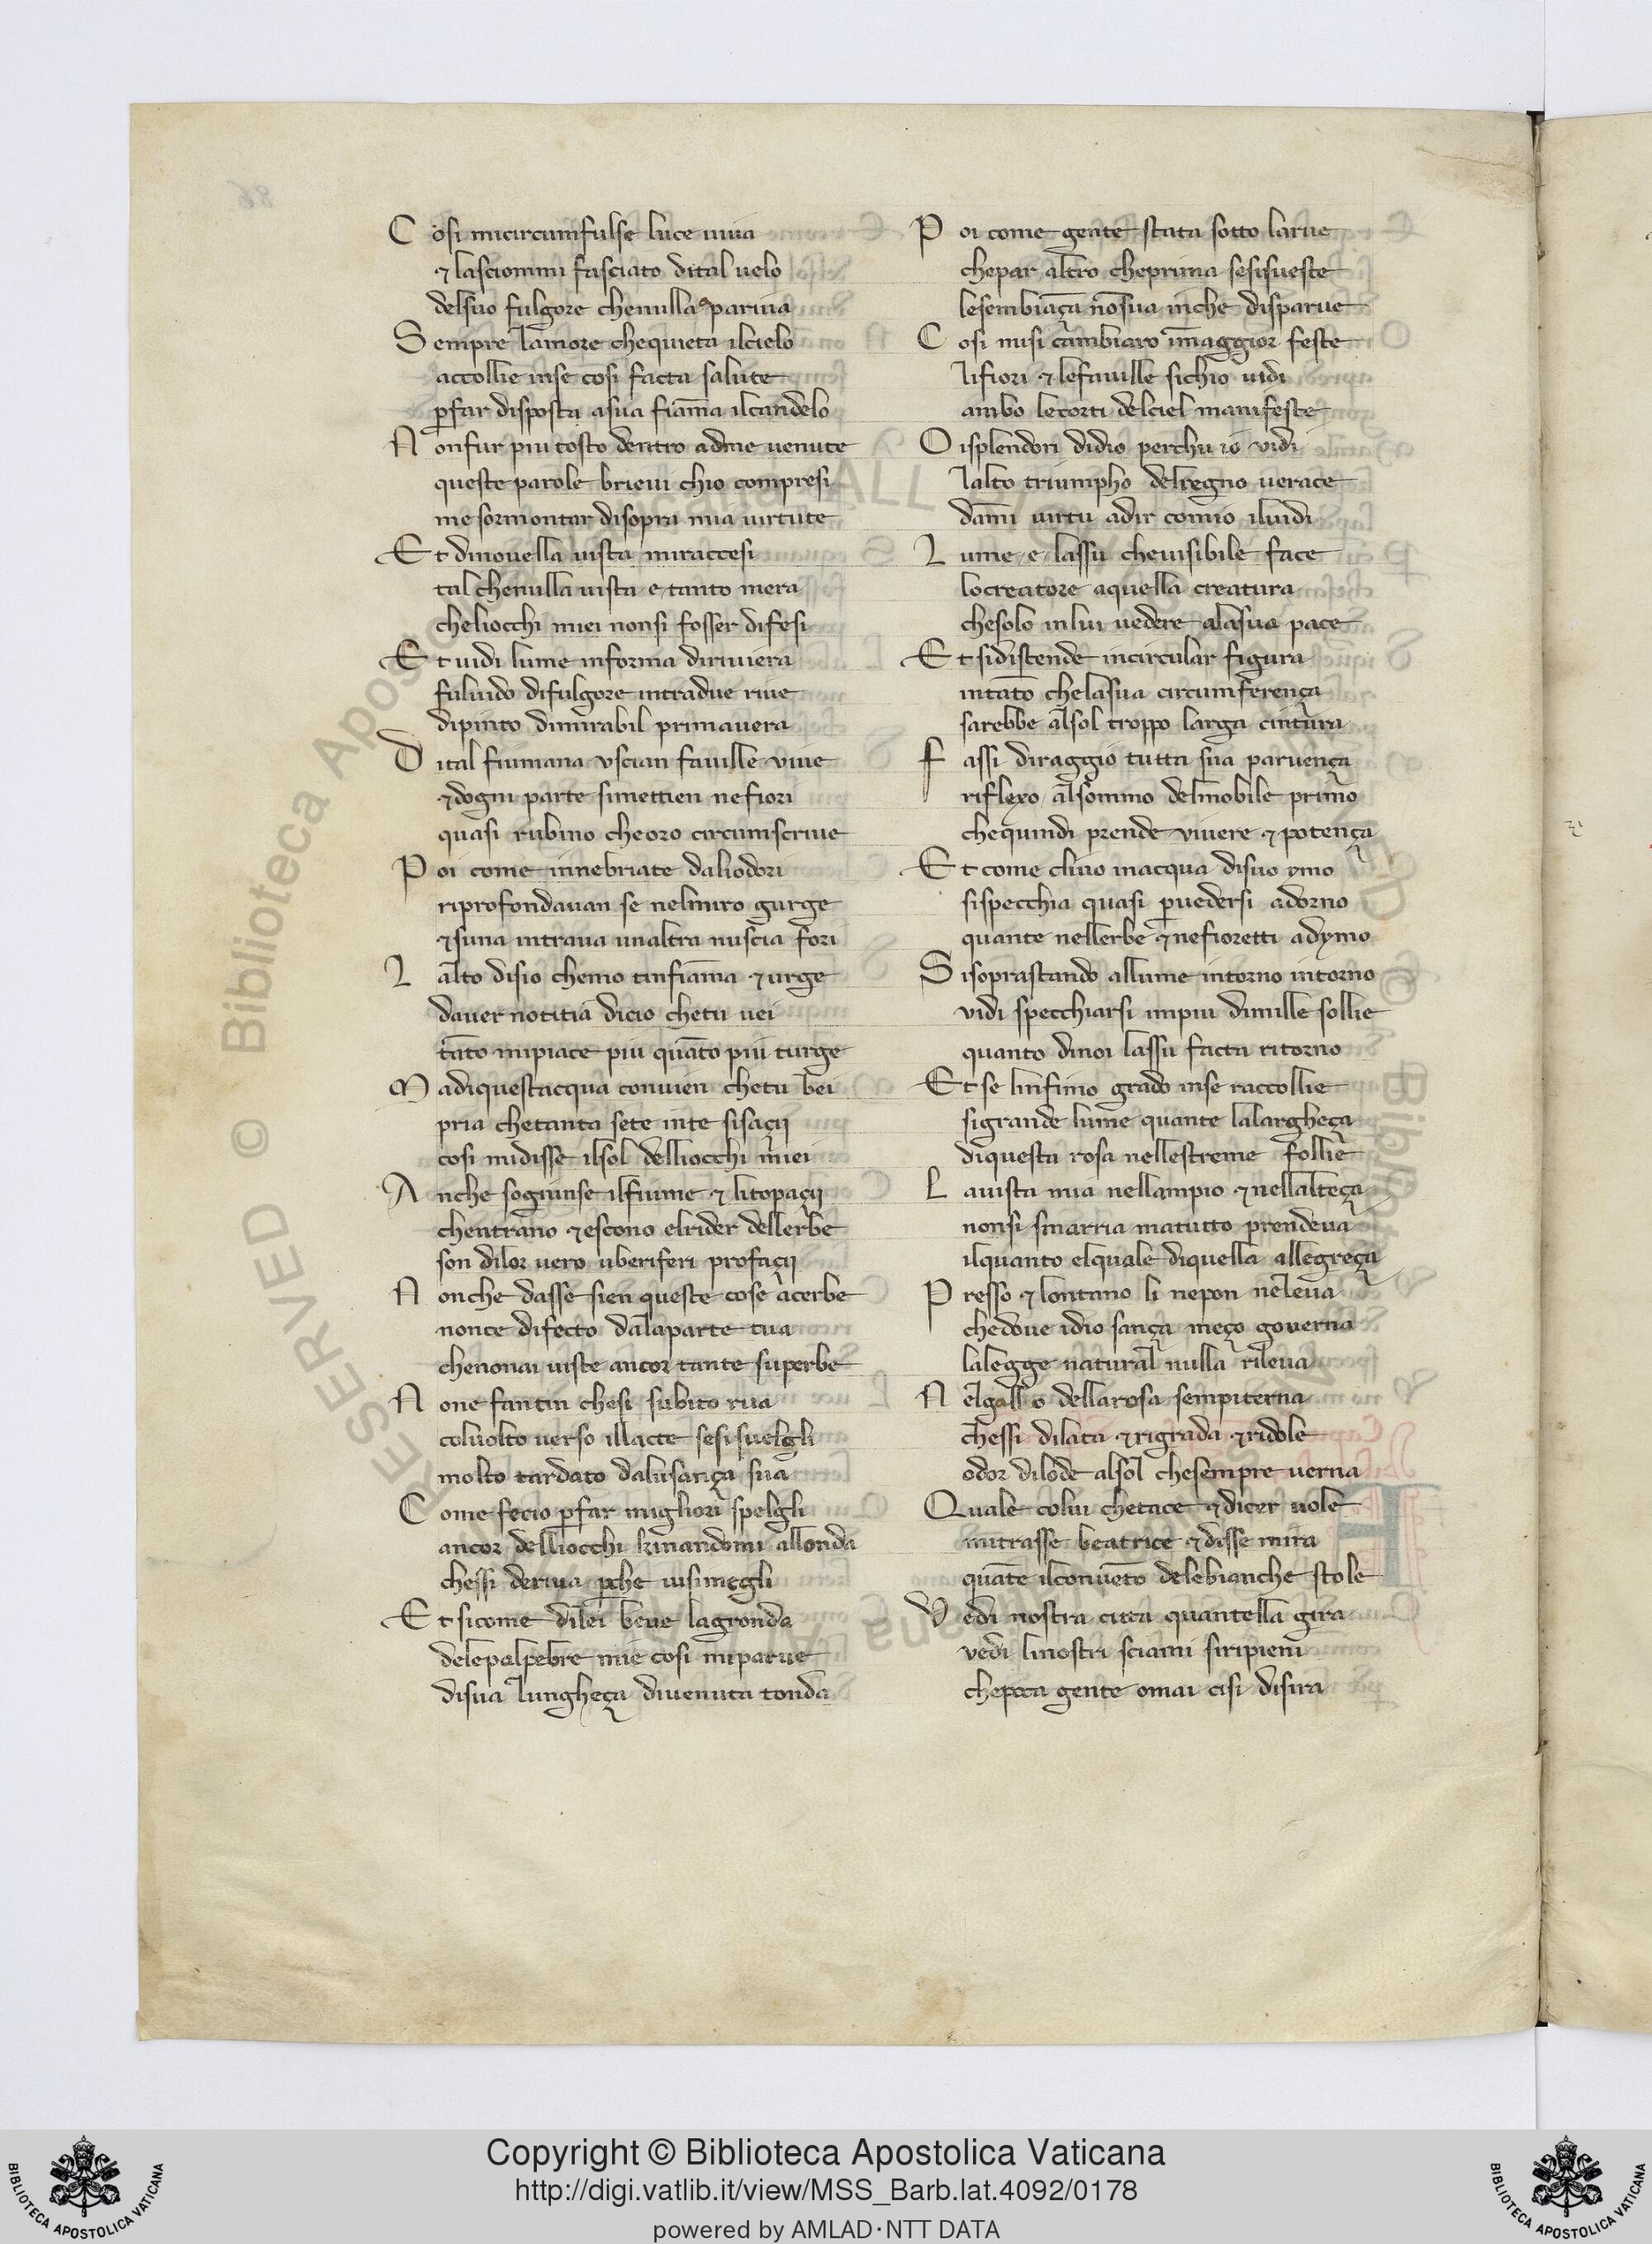 Cosi micircumfulse luce uiua
⁊ lasciommi fasciato dital uelo
delsuo fulgore chenulla mparuia
Sempre lamore chequieta ilcielo
accollie inse cosi facta salute
pfar disposta asua fiama ilcandelo
Nonfur piu tosto dentro adme uenute
queste parole brieui chio compresi
me sormontar disopra mia uirtute
Et dinouella uista miraccesi
tal chenulla uista e tanto mera
cheliocchi miei nonsi fosser difesi
Et uidi lume informa diriuiera
fuluido difulgore intradue riue
dipinto dimirabil primauera
Dital fiumana vscian fauille viue
⁊dogni parte simettien nefiori
quasi rubino cheoro circumscriue
Poi come innebriate daliodori
riprofondauan se nelmiro gurge
⁊suna intraua unaltra nuscia fori
Lalto disio chemo tinfiama ⁊ urge
dauer notitia dicio chetu uei
tāto mipiace piu quāto piu turge
Madiquestacqua conuien chetu bei
pria chetanta sete inte sisaçii
cosi midisse ilsol delliocchi miei
Anche sogiunse ilfiume ⁊ litopaçii
chentrano ⁊escono elrider dellerbe
son dilor uero vberiferi profaçii
Non che dasse sien queste cose acerbe
nonce difecto dalaparte tua
chenonai uiste ancor tante superbe
None fantin chesi subito rua
coluolto uerso illacte sesisuelgli
molto tardato dalusança sua
Come fecio pfar migliori spelgli
ancor delliocchi kinandomi allonda
chessi deriua pche uisimegli
Et sicome dilei beue lagronda
delepalpebre mie cosi miparue
disua lungheça diuenuta tonda
Poi come gente stata sotto larue
chepar altro cheprima sesisueste
lesembiāça nōsua inche disparue
Cosi misi cambiaro īmaggior feste
lifiori ⁊ lefauille sichio uidi
ambo lecorti delciel manifeste
Oisplendori didio perchu io vidi
lalto triumpho delregno uerace
dāmi uirtu adir comio iluidi
Lume e lassu cheuisibile face
locreatore aquella creatura
chesolo inlui uedere alasua pace
Et sidistende incircular figura
intāto chelasua circumferença
sarebbe alsol troppo larga cintura
Fassi diraggio tutta sua paruença
riflexo alsommo delmobile primo
chequindi prende viuere ⁊ potença
Et come cliuo inacqua disuo ymo
sispecchia quasi puedersi adorno
quante nellerbe ⁊ nefioretti adymo
Sisoprastando allume intorno intorno
vidi specchiarsi inpiu dimille sollie
quanto dinoi lassu facta ritorno
Et se linfimo grado inse raccollie
sigrande lume quante lalargheça
diquesta rosa nellestreme follie
Lauista mia nellampio ⁊ nellalteça
nonsi smarria matutto prendeua
ilquanto elquale diquella allegreça
Presso ⁊ lontano li nepon neleua
chedoue idio sança meço gouerna
lalegge natural nulla rileua
Nelgallo dellarosa sempiterna
chessi dilata ⁊rigrada ⁊ridole
odor dilode alsol chesempre uerna
Quale colui chetace ⁊ dicer uole
mitrasse beatrice ⁊ disse mira
quāte ilconuēto delebianche stole
Vedi nostra citta quantella gira
vedi linostri sciami siripieni
chepoca gente omai cisi disira
Copyright © Biblioteca Apostolica Vaticana
http://digi.vatlib.it/view/MSS_Barb.lat.4092/0178
powered by AMLAD·NTT DATA